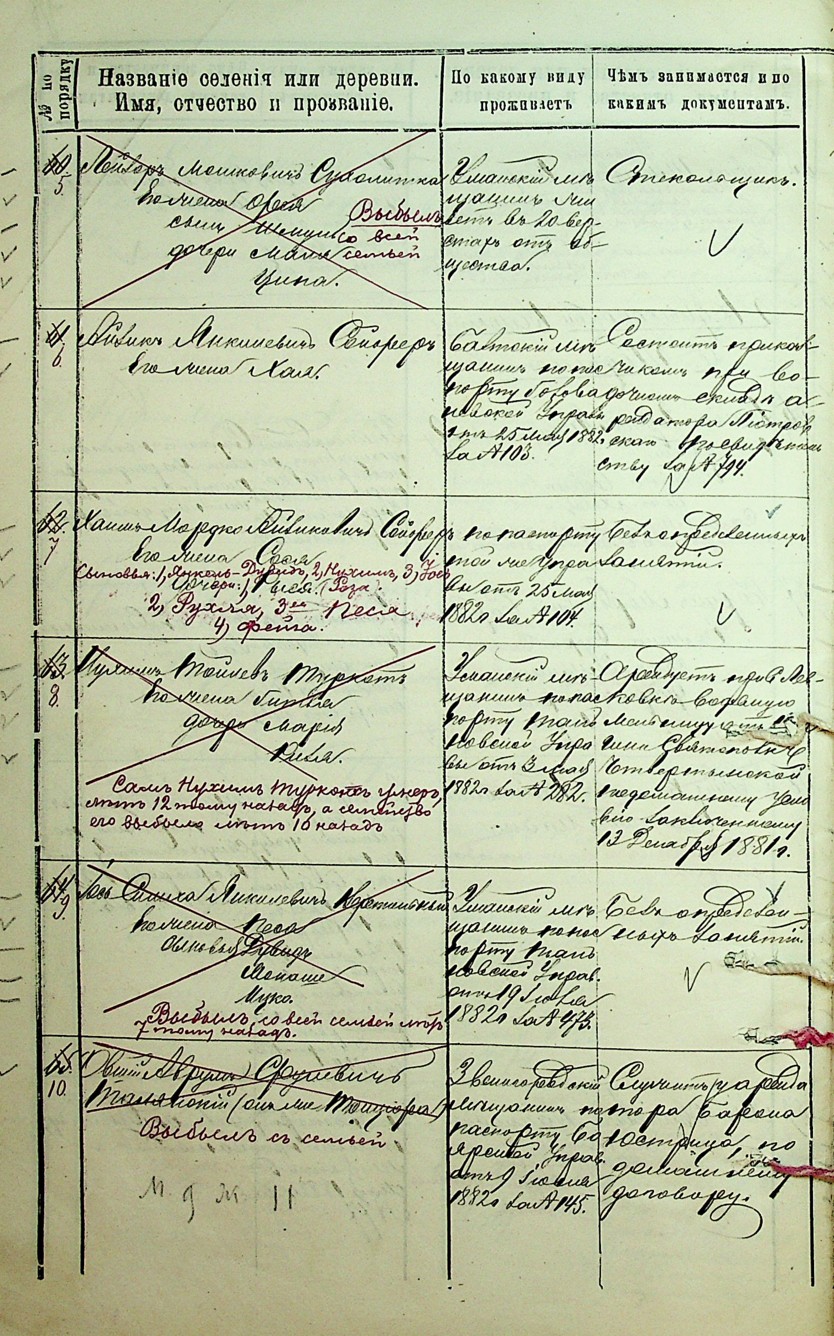 № по порядку
Названіе селенія или деревни.
Имя, отчество и прозваніе.
По какому виду
проживаетъ
Чѣмъ занимается и по
какимъ документамъ.
60.
5.
Лейзоръ Мошковичъ Сухолитка
Его жена
сынъ
дочери Маля
Ципа.
Выбылъ
со всей
семьей
Уманскій мѣ-
щанинъ жи
ветъ въ 20 вер-
стахъ отъ об-
щества.
Стекольщикъ.
61.
6.
Айзикъ Янкилевичъ Сойферъ
Его жена Хая.
Балтскій мѣ-
щанинъ по пас
порту Голова
невской Управ
отъ 25 Мая 1882
за № 103.
Состоитъ прикащ-
чикомъ при во-
дочномъ складѣ а-
рендатора Піотров
скаго
ству за № 794.
62.
7
Хаимъ Мордко Айзиковичъ Сойферъ
Его жена Сося
Сыновья: 1, Янкель-Дувидъ, 2, Нухимъ, 3,
Дочери: 1, Роза
2, Рухля, 3ья Песя
4, Фейга.
по паспорту
той же Упра
вы отъ 25 Мая
1882 г за № 104.
Безъ опредѣленныхъ
занятій.
63
8.
Нухимъ Турконъ
Его жена Гитля
дочери Марія
Ривля.
Самъ Нухимъ Турконъ умеръ,
лѣтъ 12 тому назадъ, а семейство
его выбыло лѣтъ 10 назадъ
Уманскій мѣ-
щанинъ по пас
порту Таль
новской Упра
вы отъ 3 Мая
1882 г за № 282.
Арендуетъ при в Лег-
водяную
мельницу отъ
гини Святополкъ
Четвертынской
по домашнему усло
вію заключенному
13 Декабря 1881 г.
64
9.
Іось Симха Янкилевичъ
Его жена Песя
сыновья Дувидъ
Монаше
Ицко.
Выбылъ со всей семьей лѣтъ
7 тому назадъ.
Уманскій мѣ-
щанинъ по пас
порту Таль
новской Управ.
отъ 19 Іюля
1882 г за № 473.
Безъ опредѣлен-
ныхъ занятій.
65.
10.
Овшій Аврумъ Срулевичъ
Тальянскій (онъ же
Выбылъ съ семьей
Звенигородскій
мѣщанинъ по
паспорту Бо
ярской Управ.
отъ 9 Іюня
1882 г за № 145.
Служитъ у аренда
тора барона
Юстрица, по
домашнему
договору.
М. 9 Ж 11